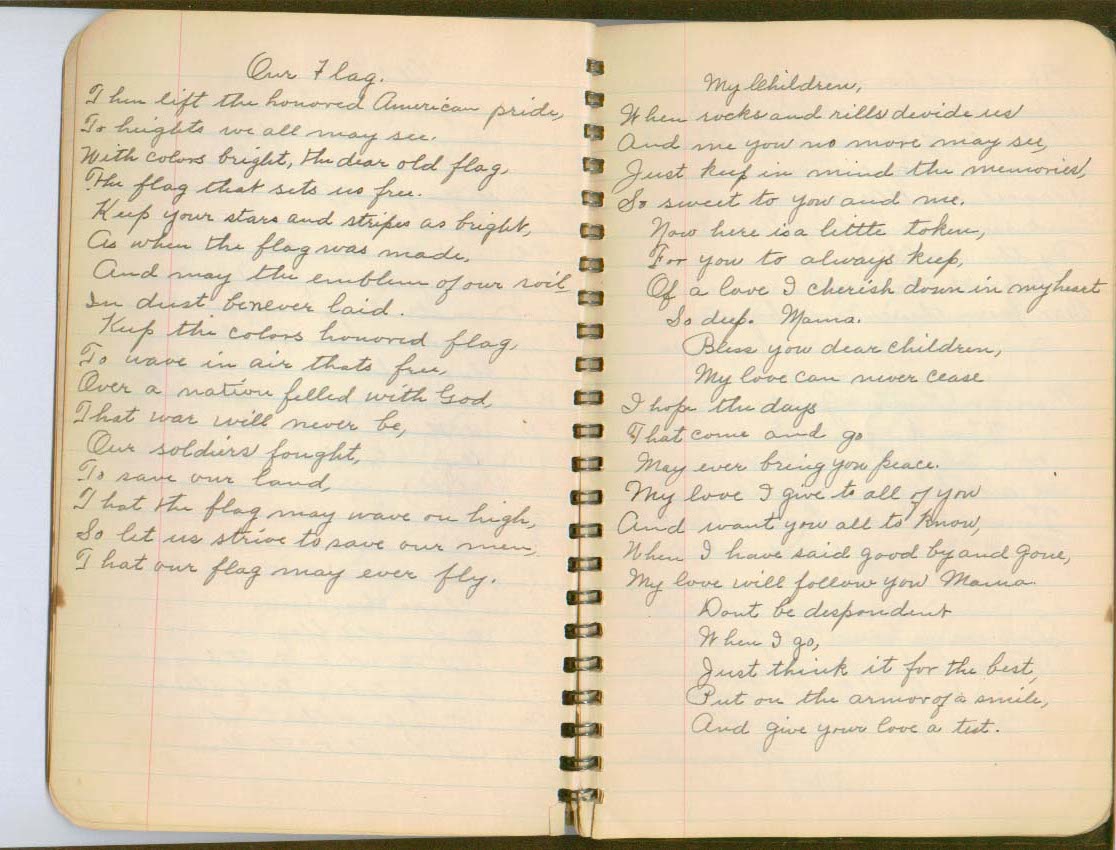 Our Flag.
Then lift the honored American pride,
To heights we all may see.
With colors bright, the dear old flag,
The flag that sets us free.
Keep your stars and stripes as bright,
As when the flag was made,
And may the emblem of our soil
In dust be never laid.
Keep the colors honored flag,
To wave in air thats free,
Over a nation filled with God,
That war will never be,
Our soldiers fought,
To save our land,
That the flag may wave on high,
So let us strive to save our men,
That our flag may ever fly.
My Children,
When rocks and rills devide us
And me you no more may see,
Just keep in mind the memories,
So sweet to you and me.
Now here is a little token,
For you to always keep,
Of a love I cherish down in my heart
So deep. Mama.
Bless you dear children,
My love can never cease
I hope the days
That come and go
May ever bring you peace.
My love I give to all of you
And want you all to know,
When I have said good by and gone,
My love will follow you Mama.
Dont be despondent
When I go,
Just think it for the best,
Put on the armor of a smile,
And give your love a test.